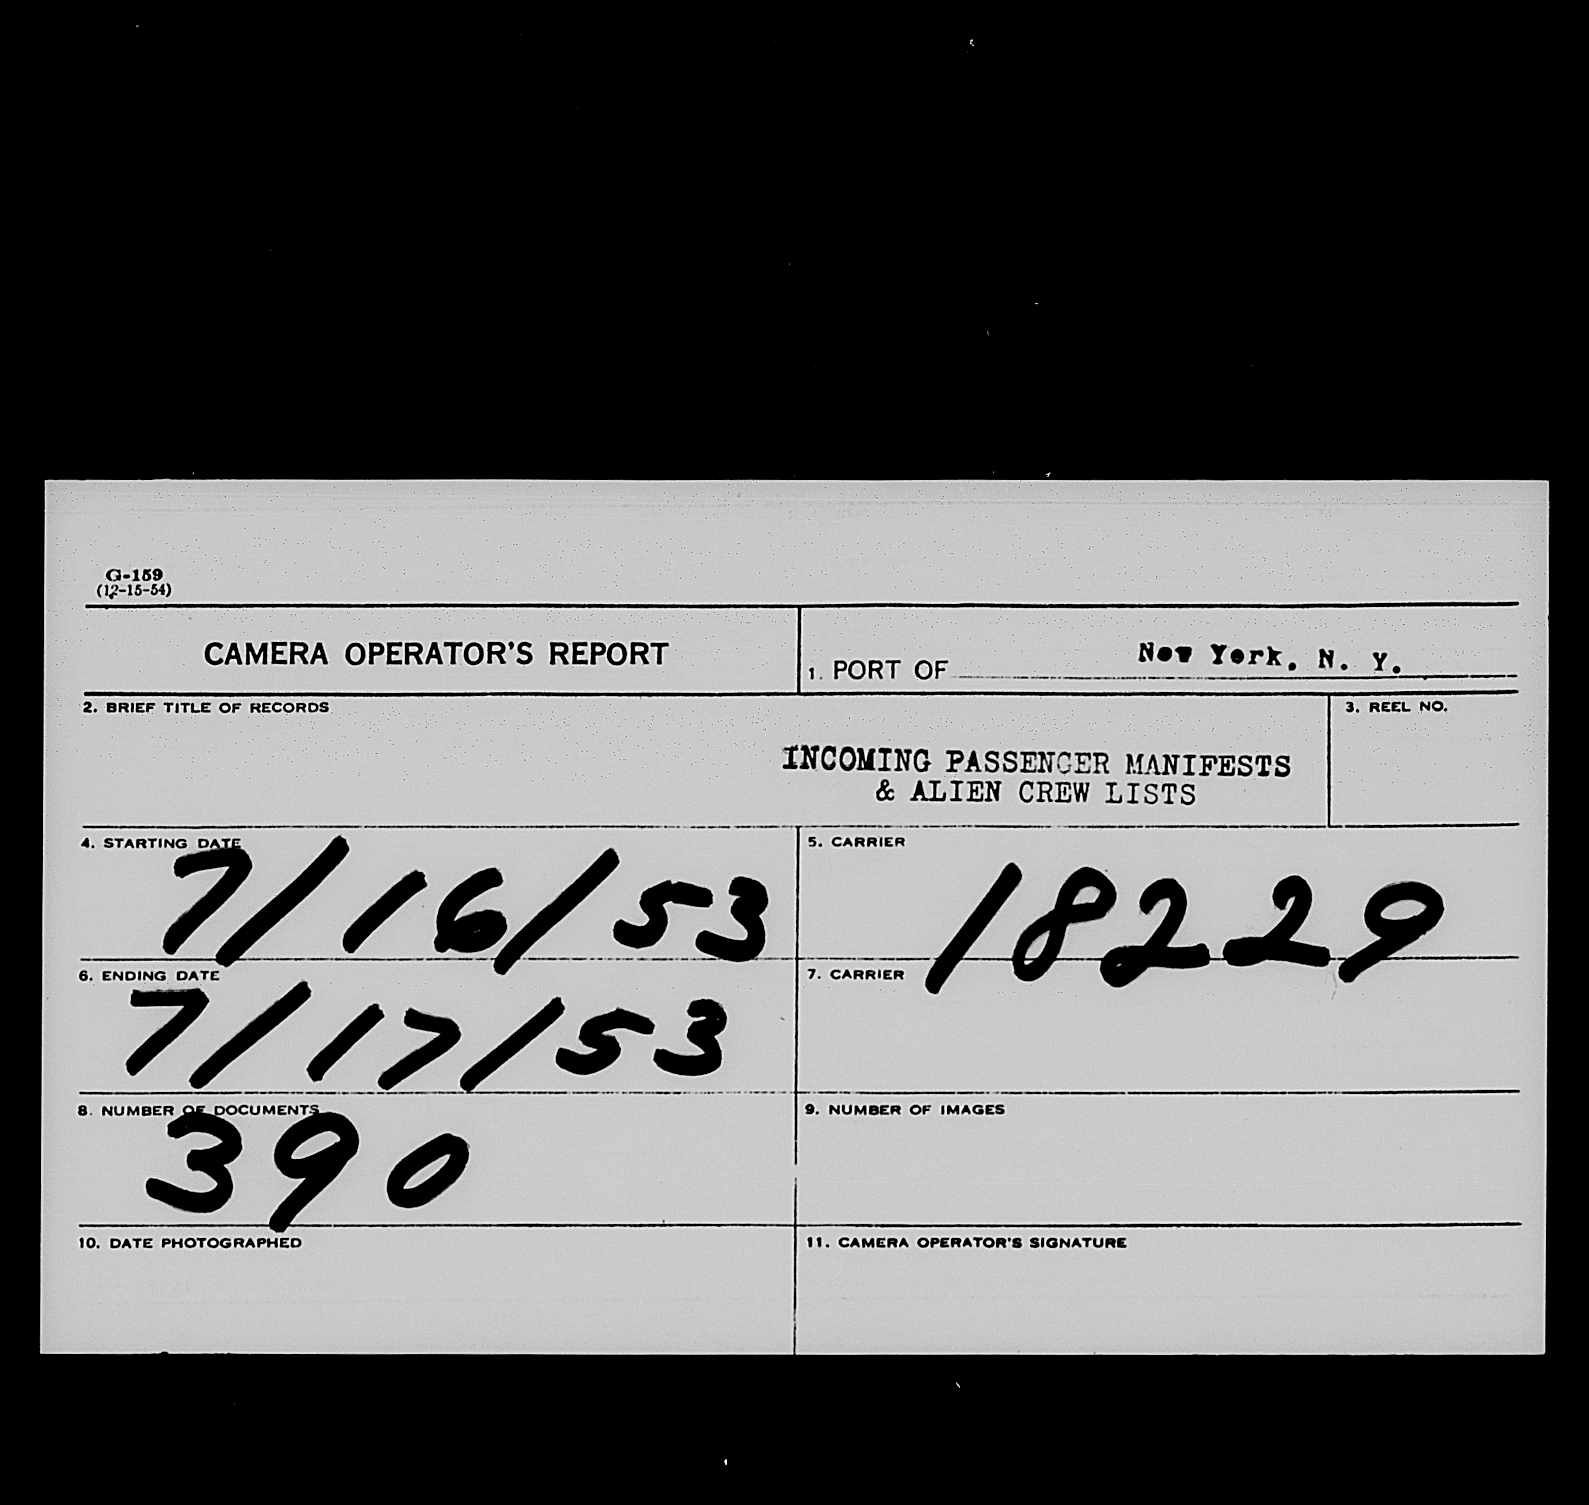 G-159
(12-15-54)
CAMERA OPERATOR'S REPORT
1. PORT OF New York, N. Y.
2. BRIEF TITLE OF RECORDS
3. REEL NO.
INCOMING PASSENGER MANIFESTS
& ALIEN CREW LISTS
4. STARTING DATE
7/16/53
5. CARRIER
18229
6. ENDING DATE
7/17/53
7. CARRIER
8. NUMBER OF DOCUMENTS
390
9. NUMBER OF IMAGES
10. DATE PHOTOGRAPHED
11. CAMERA OPERATOR'S SIGNATURE